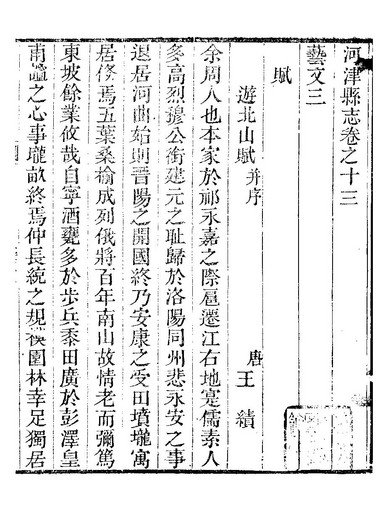 河津縣志卷之十三
藝文三
賦
遊北山賦 并序
唐 王績
余周人也本家於祁永嘉之際扈遷江右地寔儒素人
多高烈穆公銜建元之耻歸於洛陽同州悲永安之事
退居河曲始則晉陽之開國終乃安康之受田墳壠寓
居倐焉五葉桑榆成列俄將百年南山故情老而彌篤
東坡餘業攸哉自寧酒甕多於步兵黍田廣於彭澤皇
甫謐之心事壠畝終焉仲長統之規模園林幸足獨居